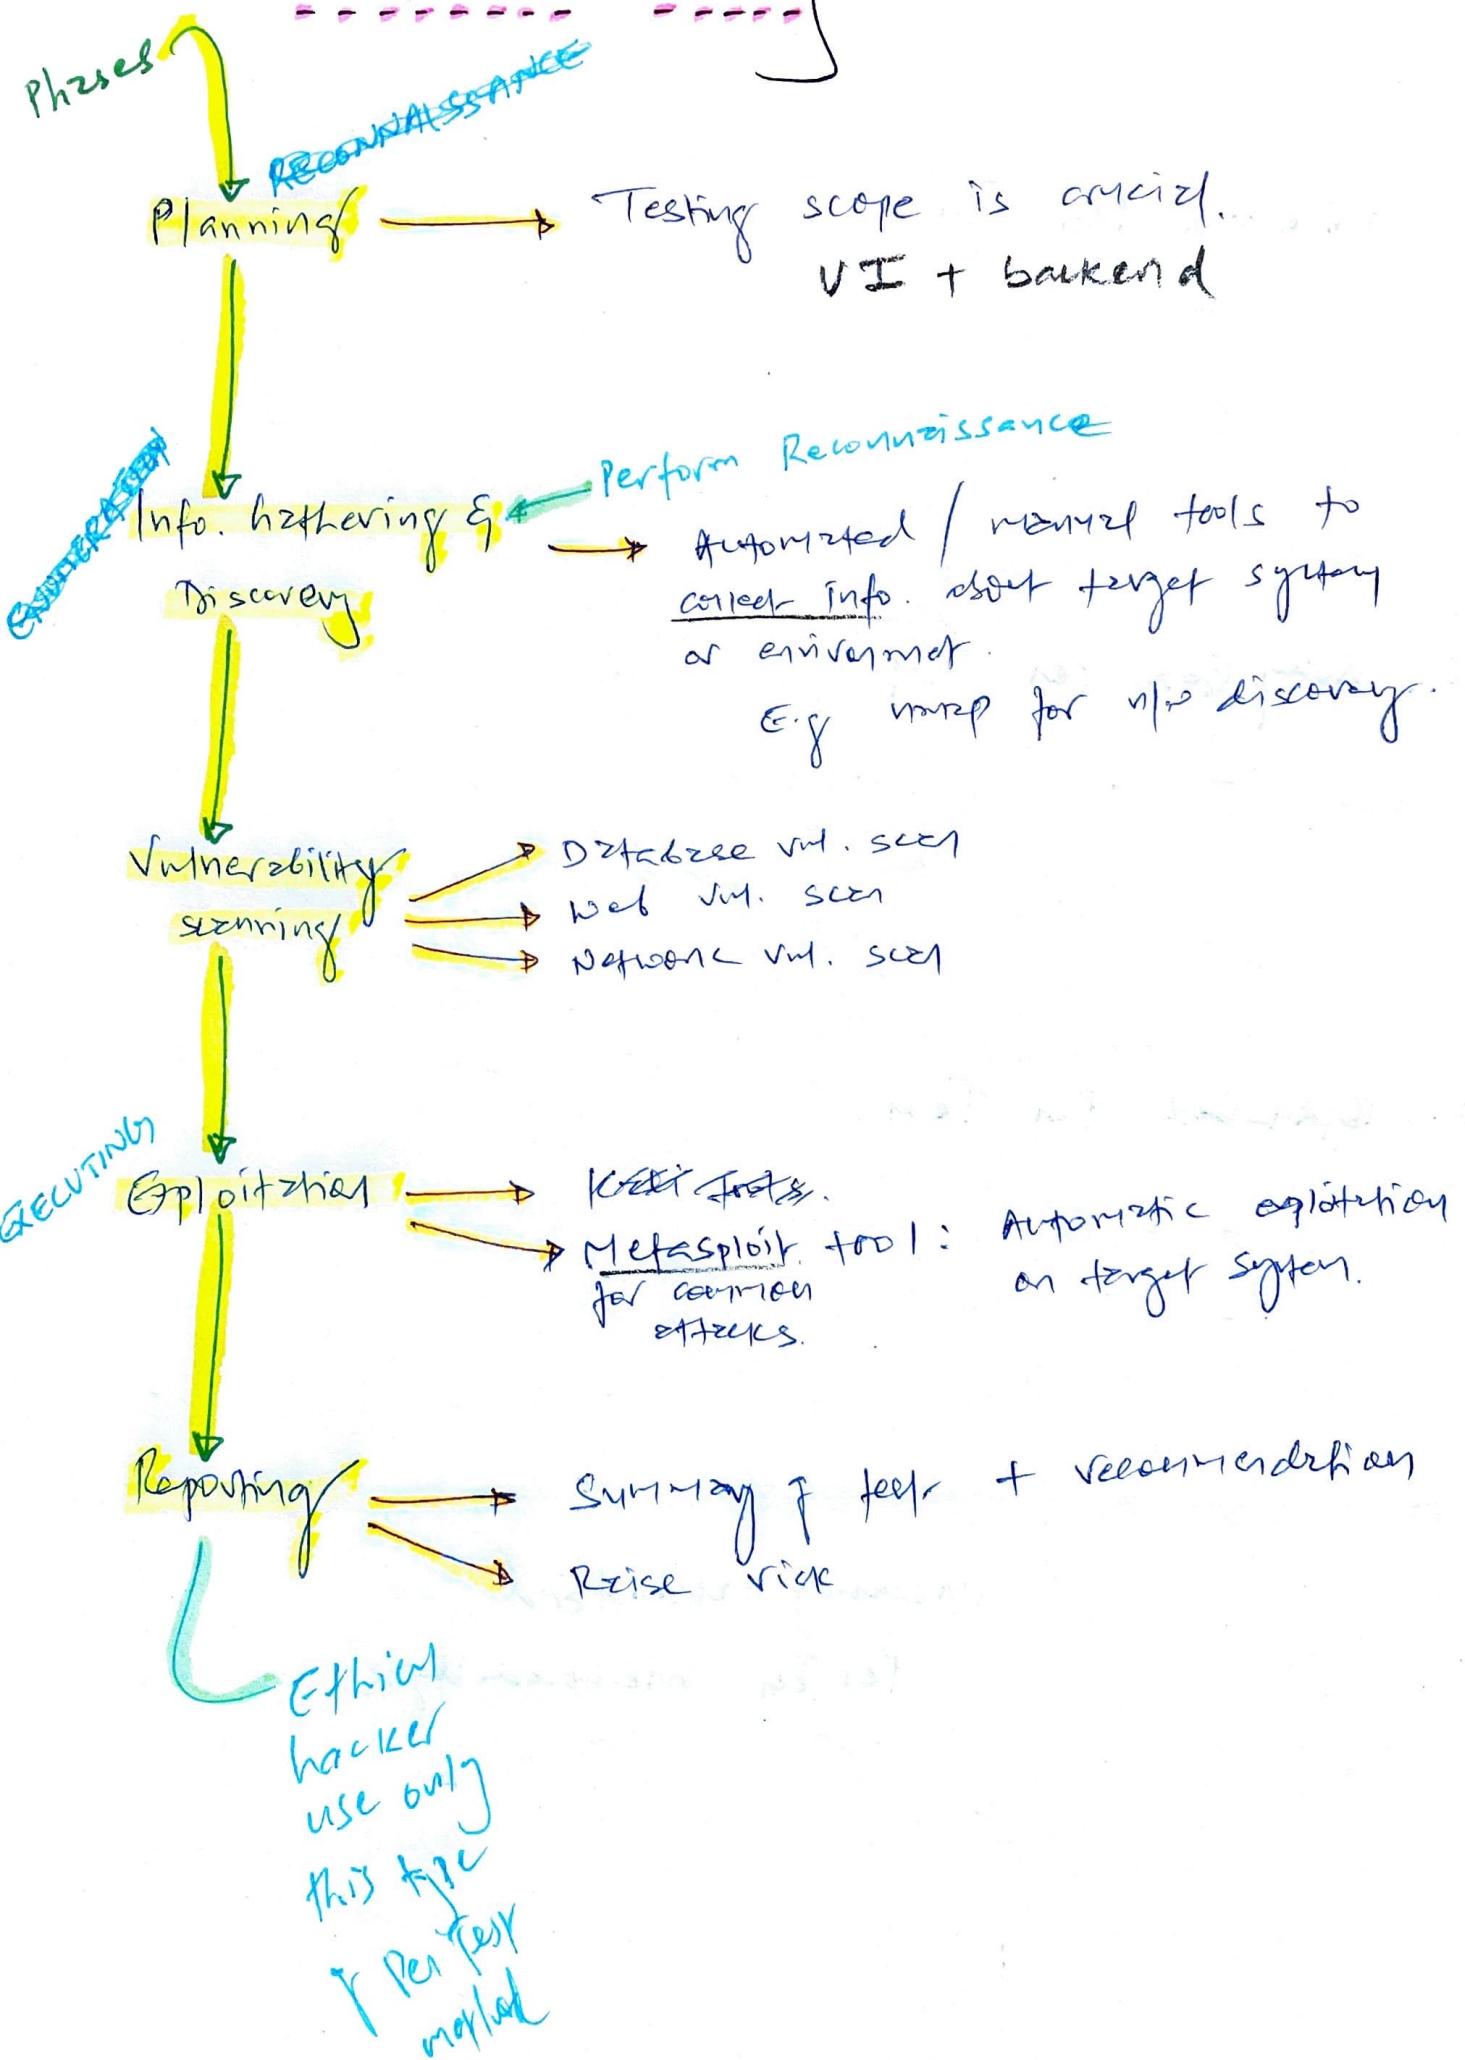 Phases
RECONNAISSANCE
Planning
Testing scope is crucial.
UI + backend
ENUMERATION
Perform Reconnaissance
Info. Gathering &
Discovery
Automated / manual tools to
collect info. about target system
or enviromet.
E.g nmap for n/w discovery.
Vulnerability
scanning
Database vul. scan
Web vul. scan
Network vul. scan
EXECUTING
Exploitation
Metasploit tool: Automatic exploitation
on target system.
for common
attacks.
Reporting
Summary of test + recommendation
Raise risk
Ethical
hacker
use only
this type
of Pen Test
method